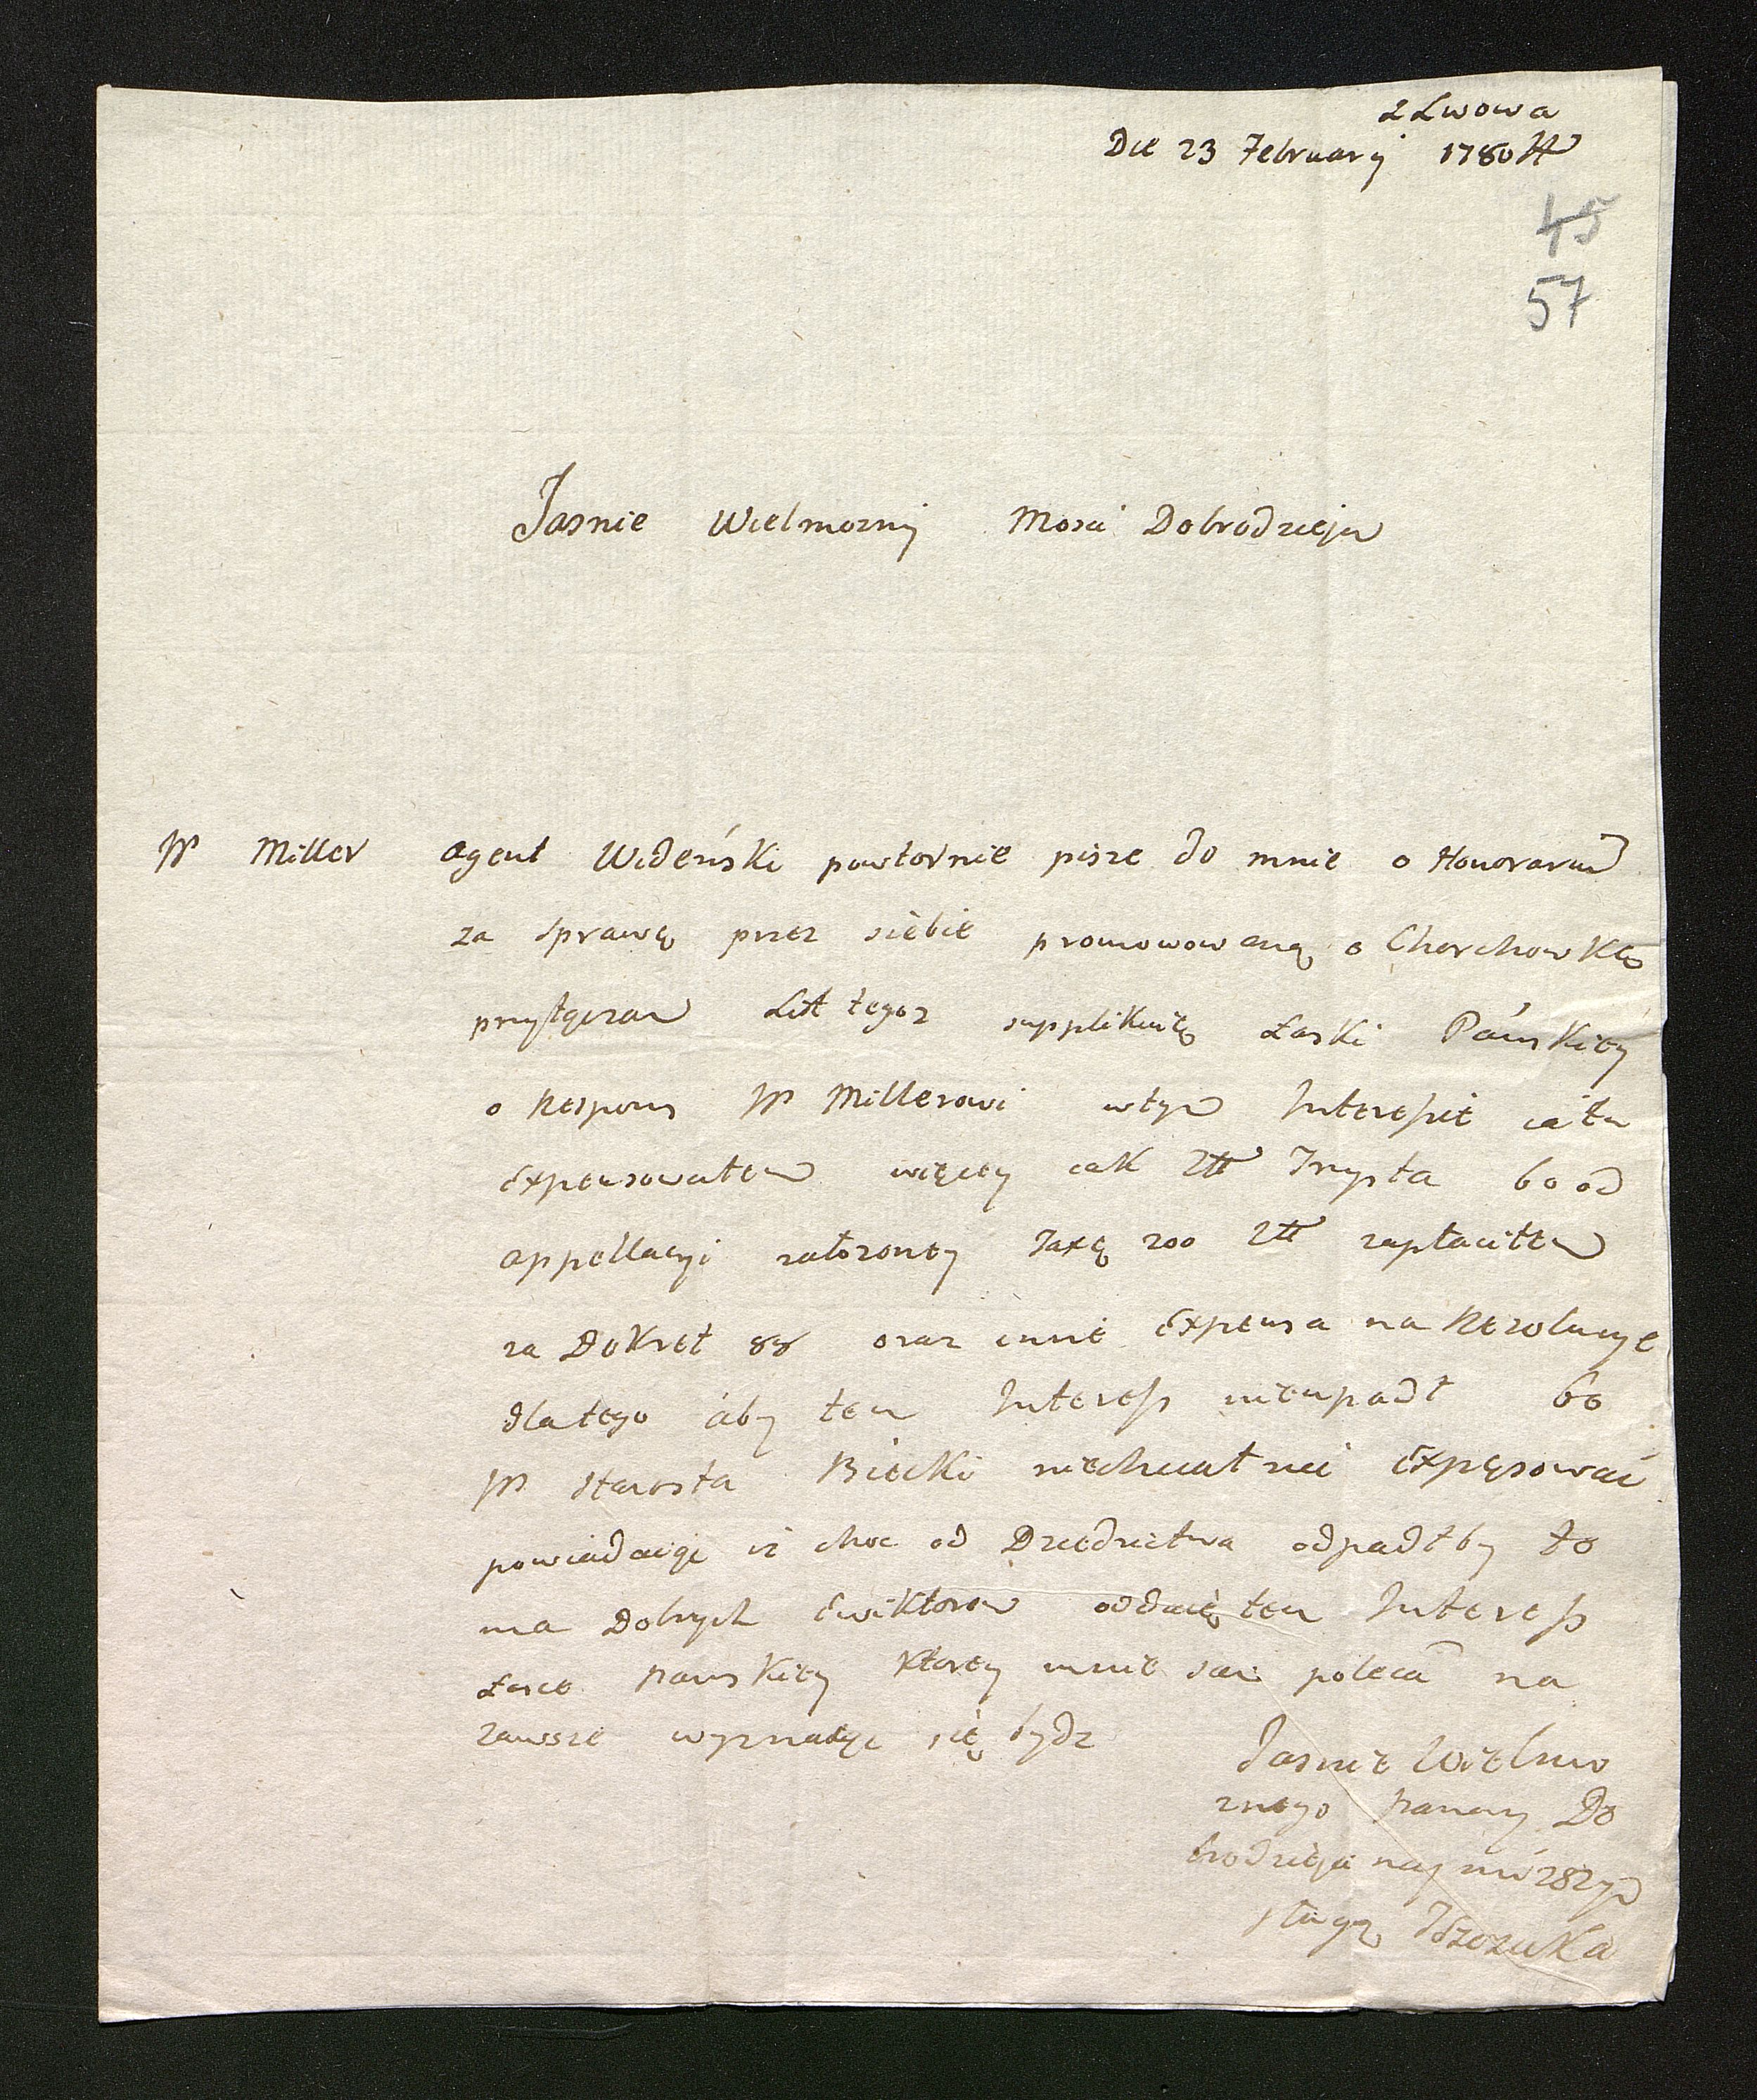 z Lwowa
Die 23 February 1780
45
57
Jasnie Wielmozny Mosci Dobrodzieju
JP Miller agent Wideński powtornie pisze do mnie o Honorarium
za sprawę przez siebie promowowaną o Chorchowkę
przyłączam List tegoz supplikuię Łaski Pańskiey
o Respons JP Millerowi wtym Interesśie ia tu
Expensowałem więcey iak Złł Trzysta bo od
appellacyi założoney Taxę 200 Złł zapłaciłem
za Dekret 88 oraz inne Expensa na Rezolucye
dlatego áby ten Interess nieupadł bo
JP Starosta Biecki niechciał nic Expęsować
powiadaiąc iz choc od Dziedzictwa odpadłby to
ma Dobrych Ewiktorow oddaię ten Interess
Łasce Panskiey ktorey mnie sam polecam na
zawsze wyznaiąc się bydz
Jasnie Wielmo
znego Pana y Do
brodzieia nay niższym
sługą Tszczuka